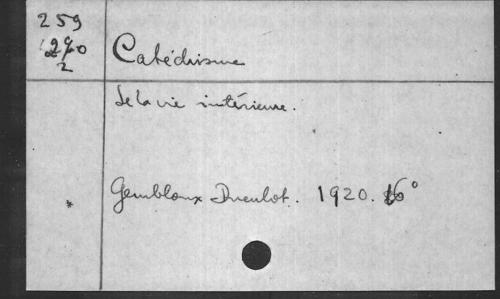 259
Catéchisme
2
de la vie intérieure.
Gembloux Duculot. 1920. 16°
*